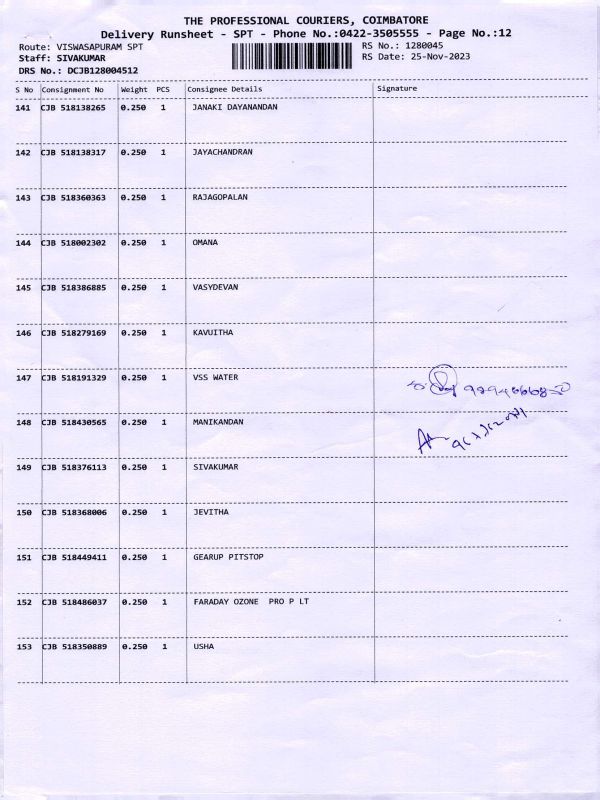 THE PROFESSIONAL COURIERS, COIMBATORE
Delivery Runsheet - SPT - Phone No.:0422-3505555 - Page No.:12
Route: VISWASAPURAM SPT RS No.: 1280045
Staff: SIVAKUMAR RS Date: 25-Nov-2023
DRS No.: DCJB128004512
S No Consignment No Weight PCS Consignee Details Signature
141 CJB 518138265 0.250 1 JANAKI DAYANANDAN
142 CJB 518138317 0.250 1 JAYACHANDRAN
143 CJB 518360363 0.250 1 RAJAGOPALAN
144 CJB 518002302 0.250 1 OMANA
145 CJB 518386885 0.250 1 VASYDEVAN
146 CJB 518279169 0.250 1 KAVUITHA
147 CJB 518191329 0.250 1 VSS WATER
148 CJB 518430565 0.250 1 MANIKANDAN
149 CJB 518376113 0.250 1 SIVAKUMAR
150 CJB 518368006 0.250 1 JEVITHA
151 CJB 518449411 0.250 1 GEARUP PITSTOP
152 CJB 518486037 0.250 1 FARADAY OZONE PRO P LT
153 CJB 518350889 0.250 1 USHA